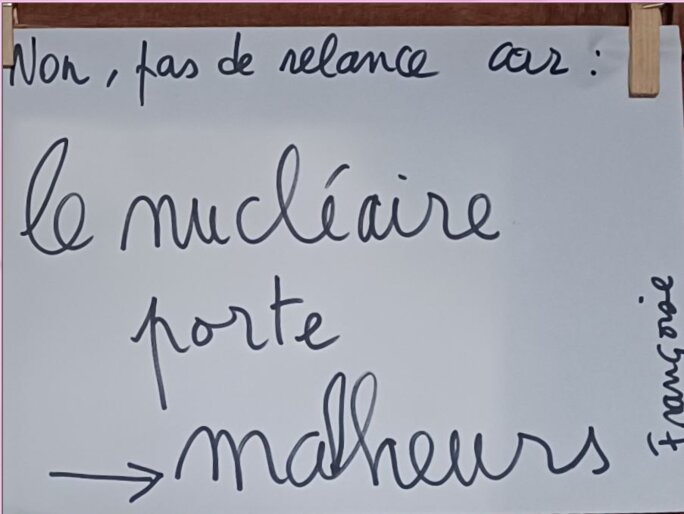 Non, pas de relance car :
le nucléaire
porte
→ malheurs
Françoise